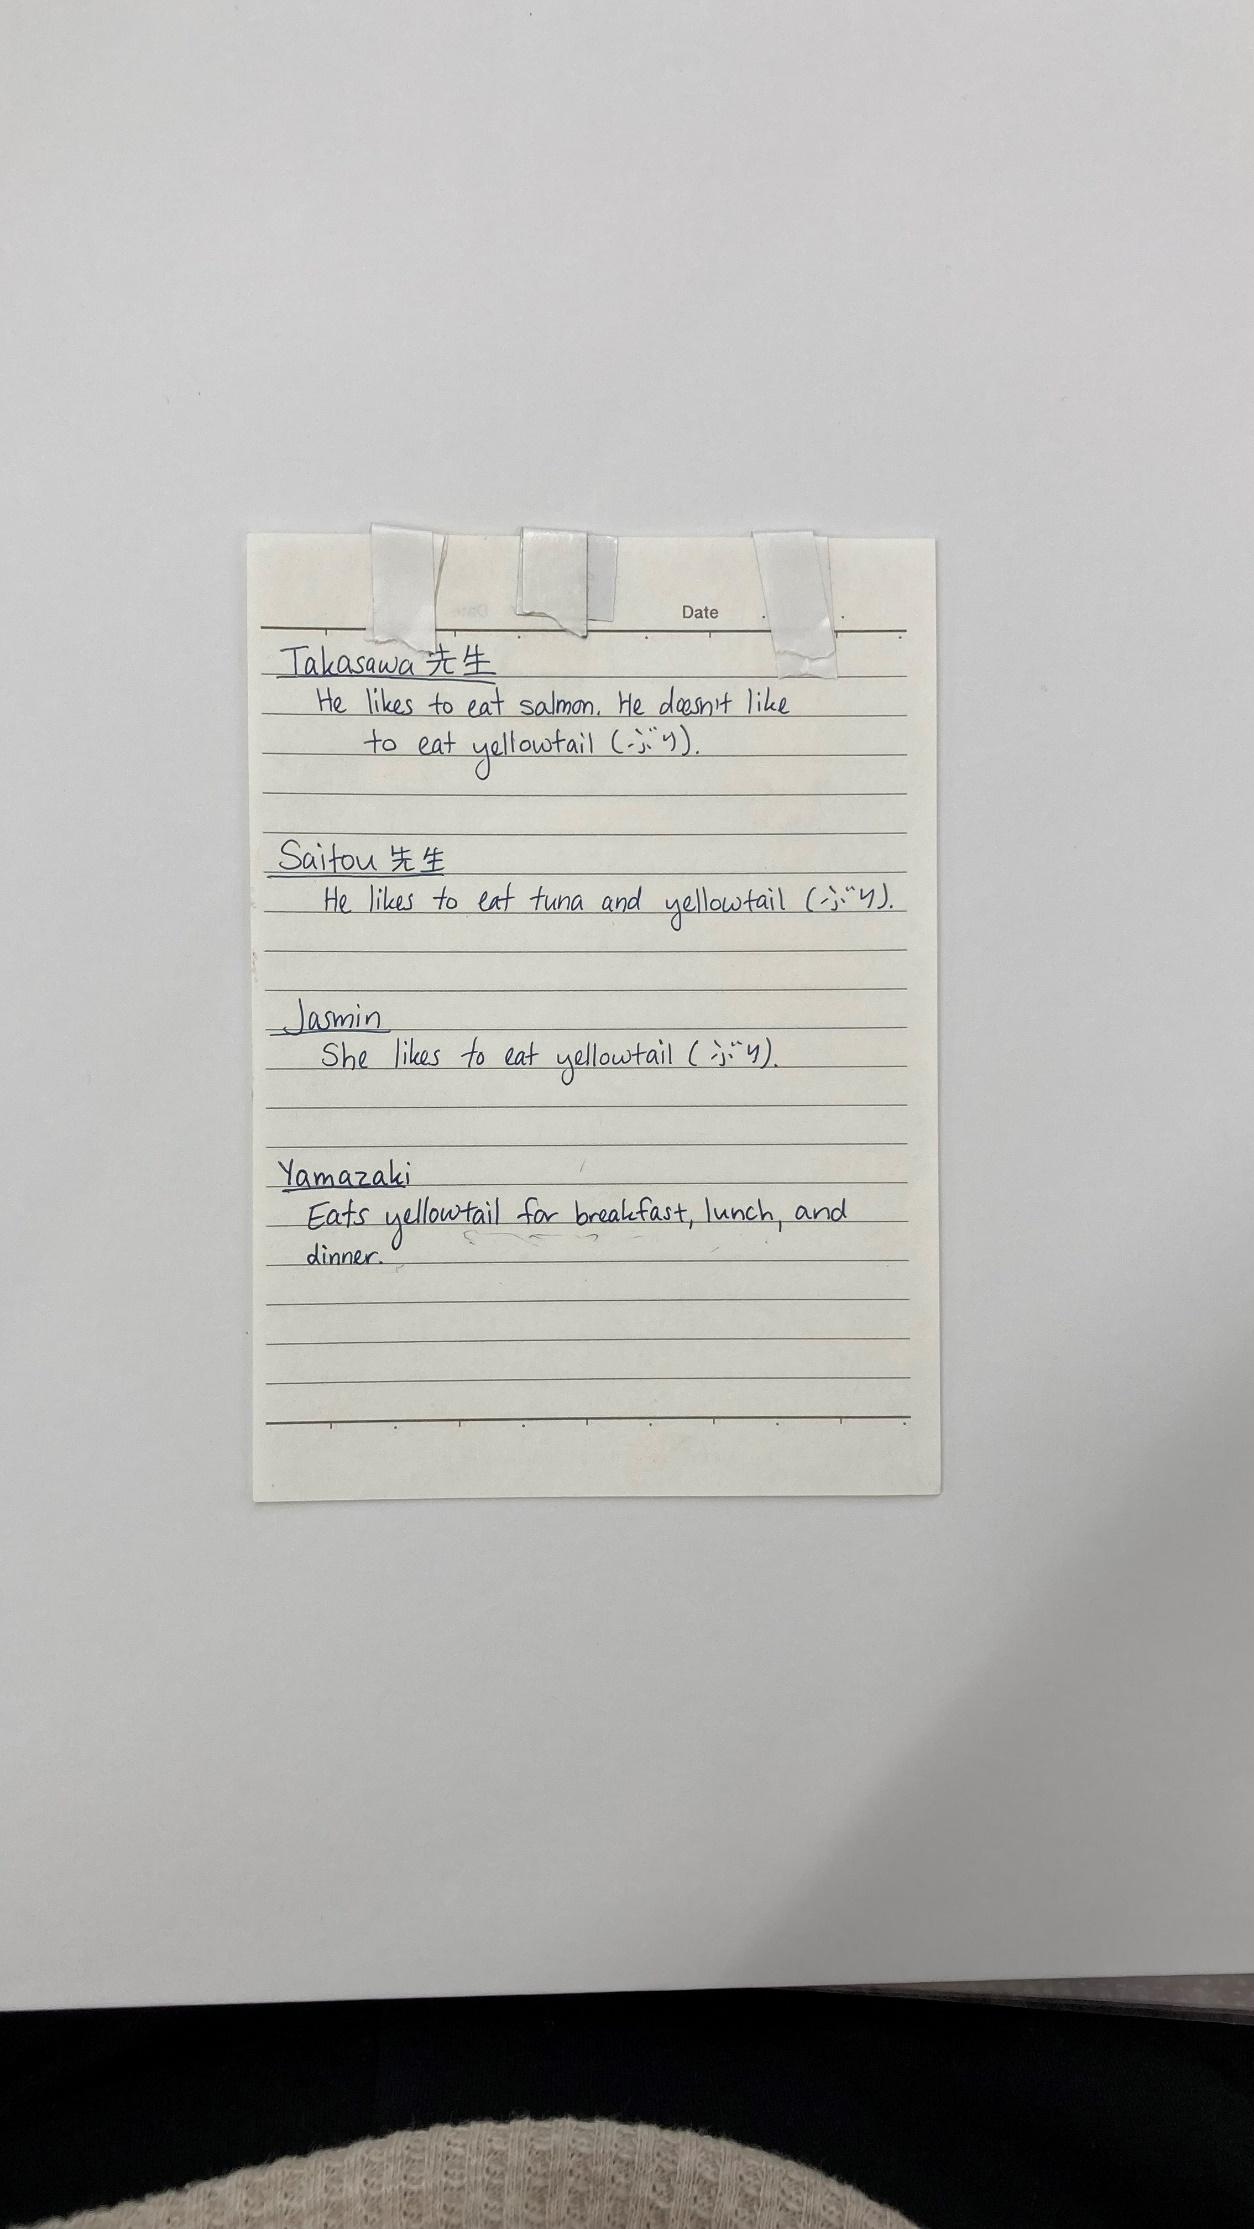 Date
Takasawa 先生
He likes to eat salmon. He doesn't like
to eat yellowtail (ぶり).
Saitou 先生
He likes to eat tuna and yellowtail (ぶり).
Jasmin
She likes to eat yellowtail (ぶり).
Yamazaki
Eats yellowtail for breakfast, lunch, and
dinner.